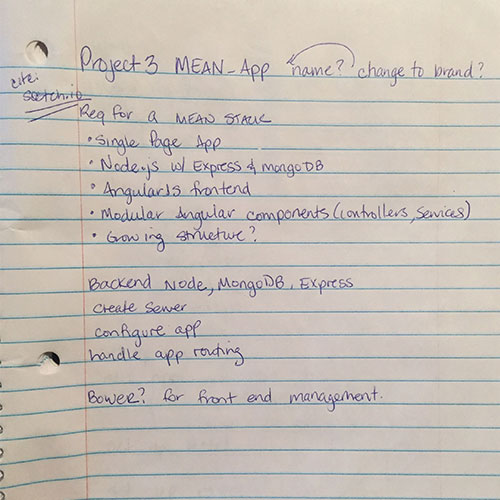 Project 3 MEAN-App name? change to brand?
cite:
scotch.io
Req for a MEAN STACK
• Single Page App
• Node.js w/ Express & MongoDB
• AngularJS frontend
• Modular Angular components (controllers, services)
• Growing structure?
Backend Node, MongoDB, Express
create server
configure app
handle app routing
Bower? for front end management.